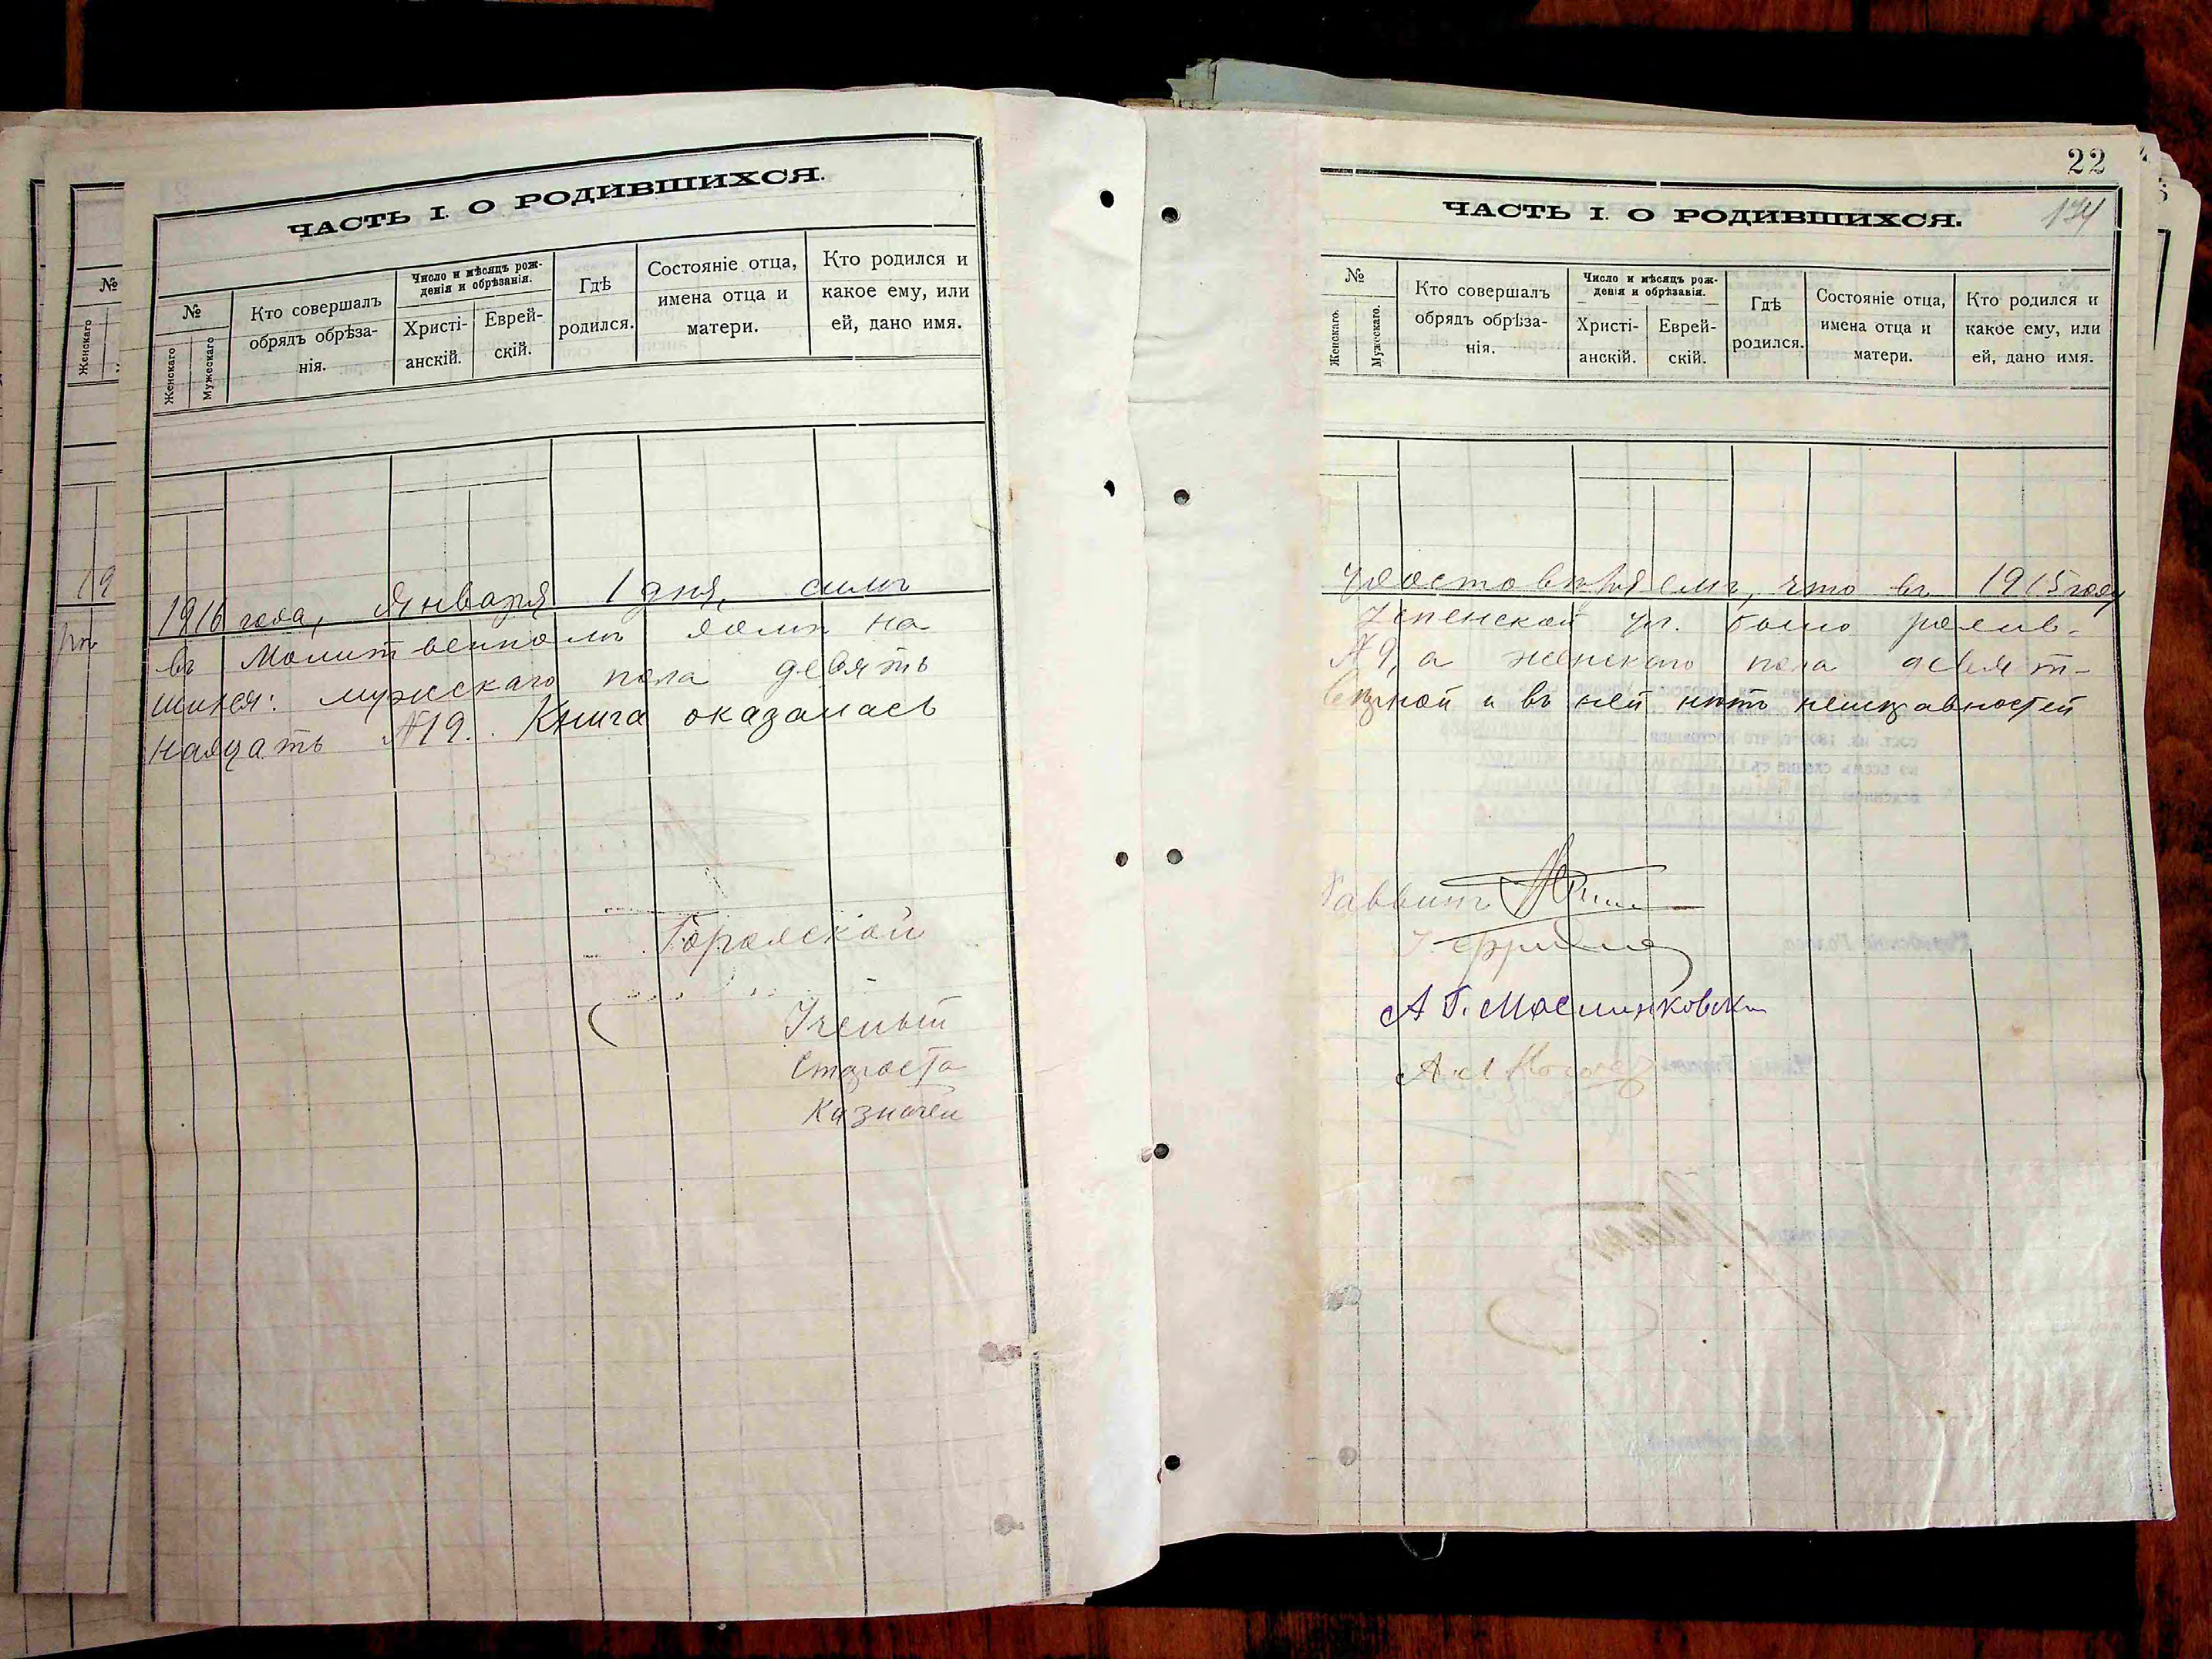 ЧАСТЬ I. О РОДИВШИХСЯ.
№
Женскаго
Мужескаго
Кто совершалъ
обрядъ обрѣза-
нія.
Число и мѣсяцъ рож-
денія и обрѣзанія.
Христі-
анскій.
Еврей-
скій.
Гдѣ
родился.
Состояніе отца,
имена отца и
матери.
Кто родился и
какое ему, или
ей, дано имя.
1916 года, Января 1 дня, симъ
въ Молитвенномъ домѣ на
шихся: мужескаго пола девять
надцать №19. Книга оказалась
Городской
Ученый
Староста
Казначей
№
Женскаго
19
22
174
ЧАСТЬ I. О РОДИВШИХСЯ.
№
Женскаго.
Мужескаго.
Кто совершалъ
обрядъ обрѣза-
нія.
Число и мѣсяцъ рож-
денія и обрѣзанія.
Христі-
анскій.
Еврей-
скій.
Гдѣ
родился.
Состояніе отца,
имена отца и
матери.
Кто родился и
какое ему, или
ей, дано имя.
удостовѣряемъ, что въ 1915 году
Успенской ул. было родив-
№ 9, а женскаго пола девят-
и въ ней нѣтъ неисправностей
Раввинъ
А Г.